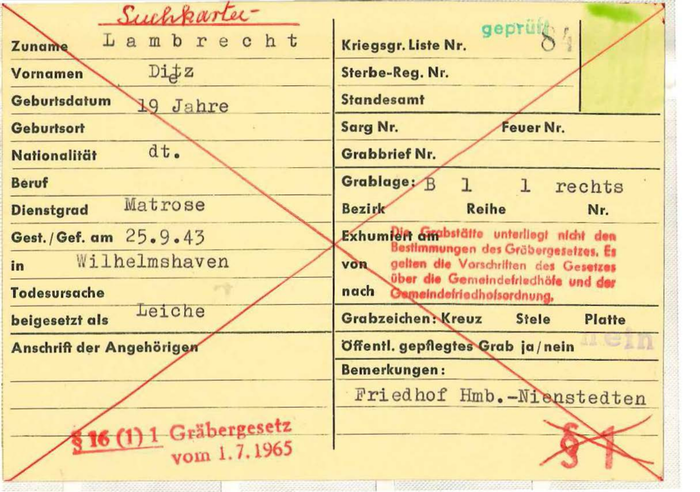 Suchkartei-
Zuname Lambrecht
Vornamen Dietz
Geburtsdatum 19 Jahre
Geburtsort
Nationalität dt.
Beruf
Dienstgrad Matrose
Gest./Gef. am 25.9.43
in Wilhelmshaven
Todesursache
beigesetzt als Leiche
Anschrift der Angehörigen
§ 16 (1) 1 Gräbergesetz
vom 1.7.1965
geprüft
Kriegsgr. Liste Nr. 84
Sterbe-Reg. Nr.
Standesamt
Sarg Nr. Feuer Nr.
Grabbrief Nr.
Grablage: B 1 1 rechts
Bezirk Reihe Nr.
Exhumiert am
von
nach
Die Grabstätte unterliegt nicht den
Bestimmungen des Gräbergesetzes. Es
gelten die Vorschriften des Gesetzes
über die Gemeindefriedhöfe und der
Gemeindefriedhofsordnung.
Grabzeichen: Kreuz Stele Platte
Öffentl. gepflegtes Grab ja/nein nein
Bemerkungen:
Friedhof Hmb.-Nienstedten
§ 1